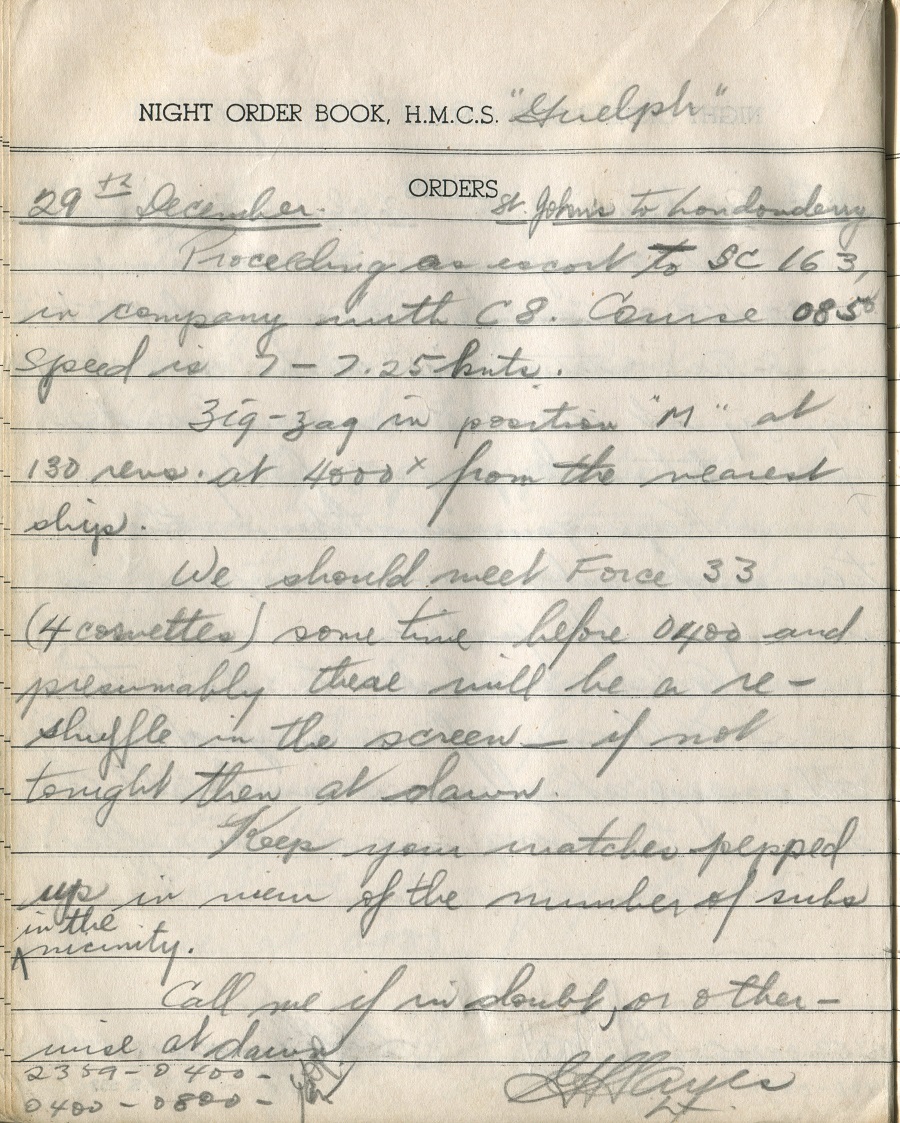 NIGHT ORDER BOOK, H.M.C.S. "Guelph"
ORDERS
29th December. St. John's to Londonderry
Proceeding as escort to SC 163,
in company with C8. Course 085°
speed is 7 – 7.25 knts.
Zig-zag in position "M" at
130 revs. at 4000x from the nearest
ship.
We should meet Force 33
(4 corvettes) some time before 0400 and
presumably there will be a re-
shuffle in the screen – if not
tonight then at dawn.
Keep your watches pepped
up in view of the number of subs
in the
^ vicinity.
Call me if in doubt, or other-
wise at dawn
2359 – 0400 –
0400 – 0800 –
GHHayes
Lt.